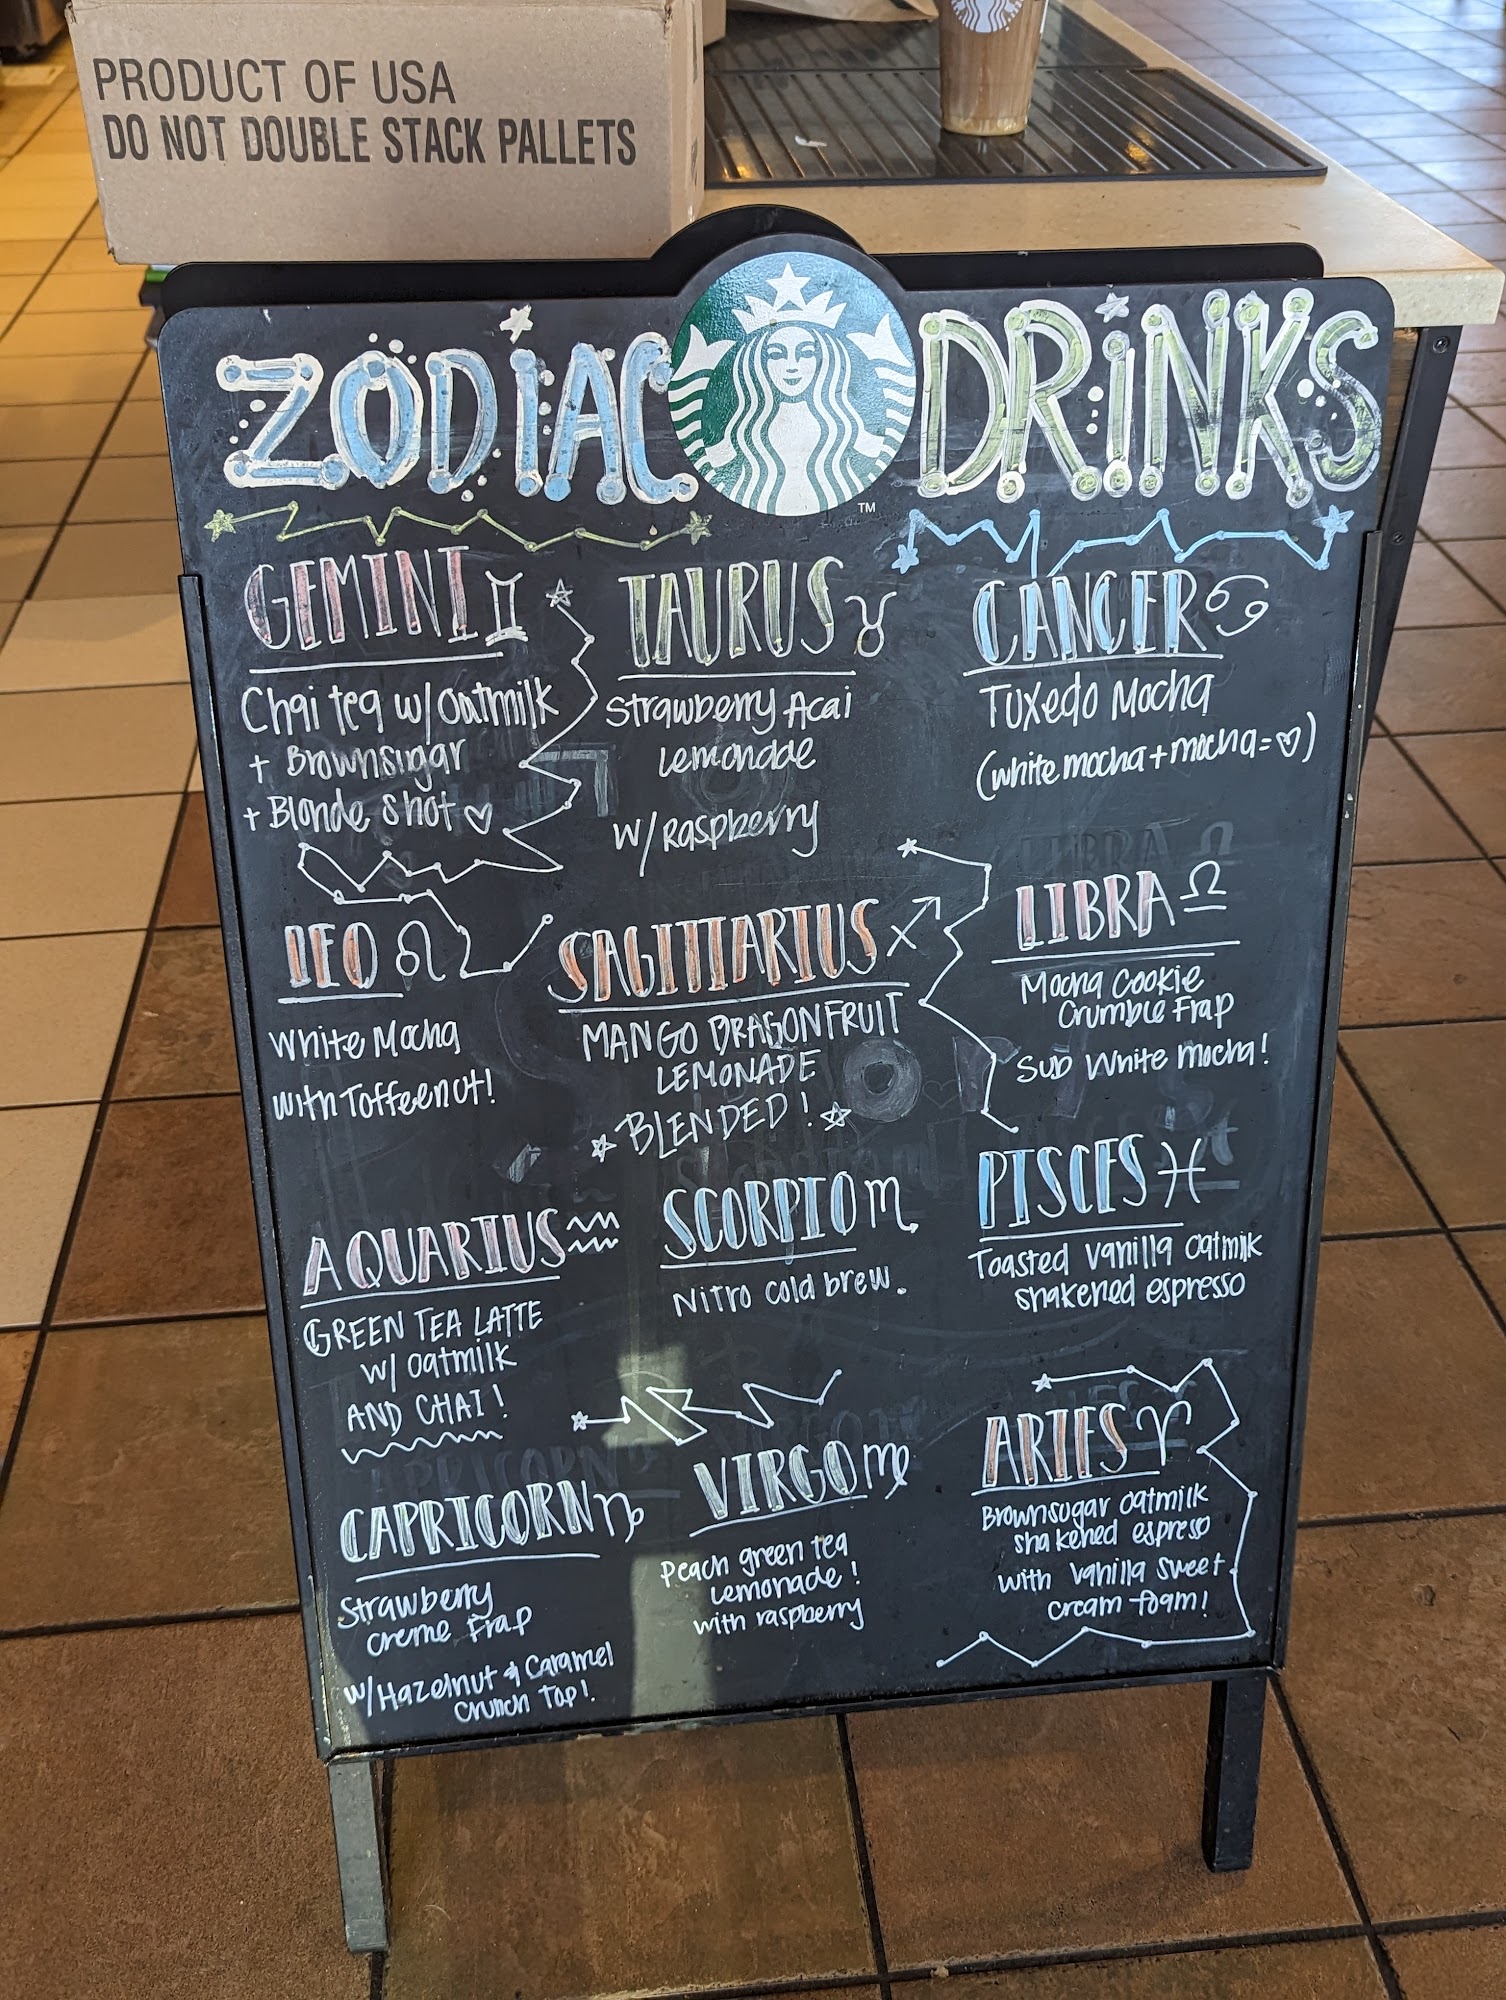 PRODUCT OF USA
DO NOT DOUBLE STACK PALLETS
ZODIAC DRINKS
TM
GEMINI
Chai tea w/ Oatmilk
+ Brownsugar
+ Blonde Shot
TAURUS
Strawberry Acai
Lemonade
w/ Raspberry
CANCER
Tuxedo Mocha
(white mocha + mocha = ♡)
LEO
White Mocha
with Toffeenut!
SAGITTARIUS
MANGO DRAGONFRUIT
LEMONADE
BLENDED!
LIBRA
Mocha Cookie
Crumble Frap
Sub White mocha!
AQUARIUS
GREEN TEA LATTE
w/ Oatmilk
AND CHAI!
SCORPIO
Nitro cold brew.
PISCES
Toasted vanilla oatmilk
shakened espresso
CAPRICORN
Strawberry
Creme Frap
w/ Hazelnut & Caramel
Crunch Top!
VIRGO
Peach green tea
Lemonade!
with raspberry
ARIES
Brownsugar oatmilk
shakened espreso
with vanilla sweet
cream foam!